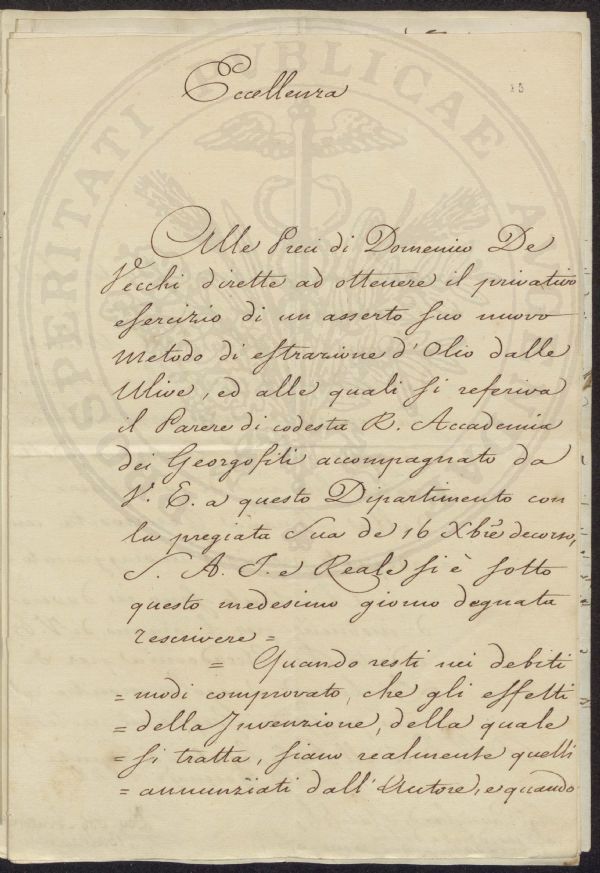 Eccellenza
13
Alle Preci di Domenico De
Vecchi dirette ad ottenere il privativo
esercizio di un asserto suo nuovo
Metodo di estrazione d'Olio dalle
Ulive, ed alle quali si referiva
il Parere di codesta R. Accademia
dei Georgofili accompagnato da
V. E. a questo Dipartimento con
la pregiata Sua de 16 Xbre decorso,
S. A. I. e Reale si è sotto
questo medesimo giorno degnata
rescrivere =
= Quando resti nei debiti
= modi comprovato, che gli effetti
= della Invenzione, della quale
= si tratta, siano realmente quelli
= annunziati dall'Autore, e quando
PROSPERITATI PUBLICAE AUGENDAE